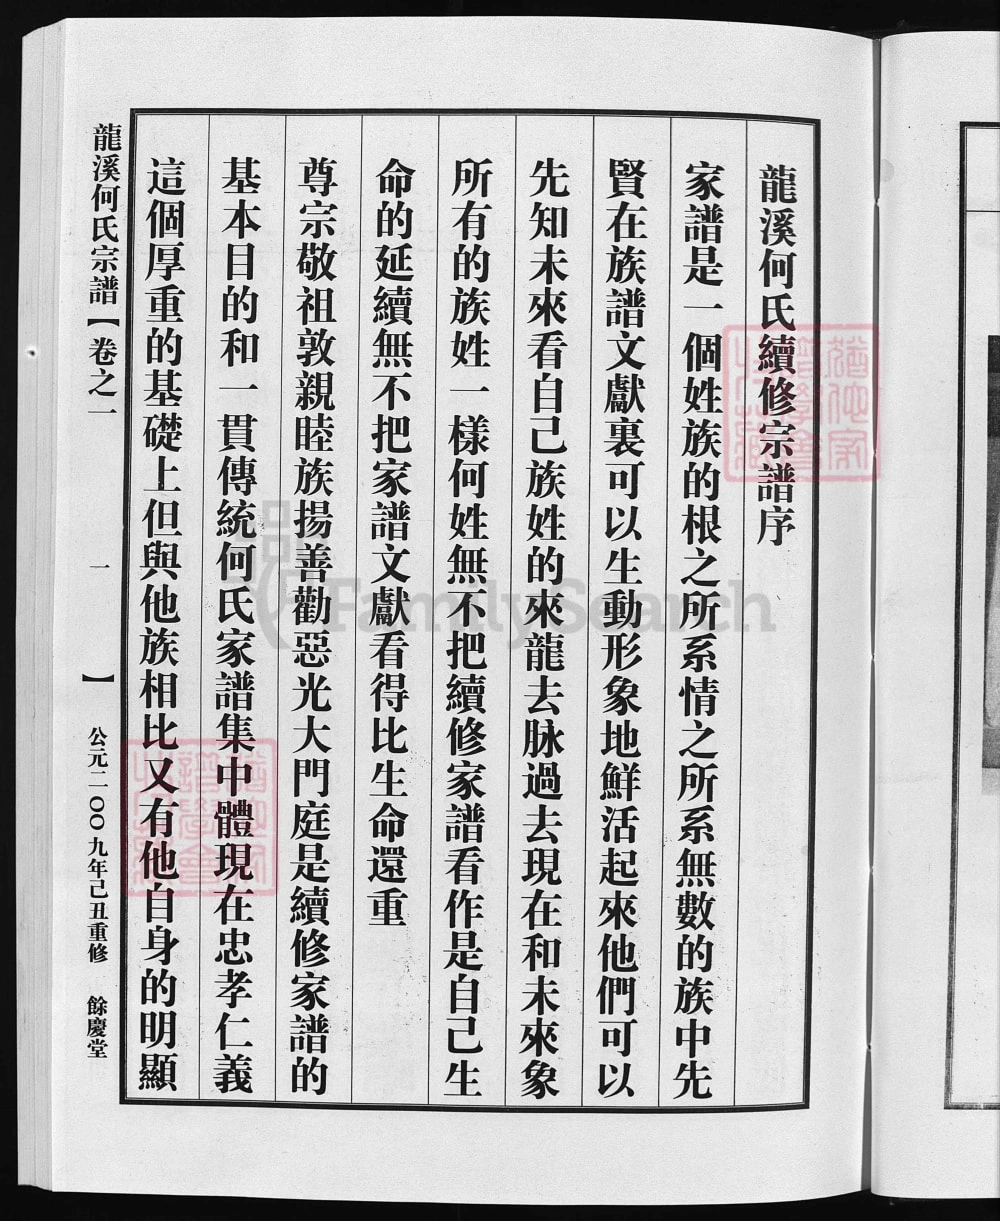 龍溪何氏續修宗譜序
家譜是一個姓族的根之所系情之所系無數的族中先
賢在族譜文獻裏可以生動形象地鮮活起來他們可以
先知未來看自己族姓的來龍去脉過去現在和未來象
所有的族姓一樣何姓無不把續修家譜看作是自己生
命的延續無不把家譜文獻看得比生命還重
尊宗敬祖敦親睦族揚善勸惡光大門庭是續修家譜的
基本目的和一貫傳統何氏家譜集中體現在忠孝仁義
這個厚重的基礎上但與他族相比又有他自身的明顯
龍溪何氏宗譜【卷之一 一 】 公元二〇〇九年己丑重修 餘慶堂
FamilySearch